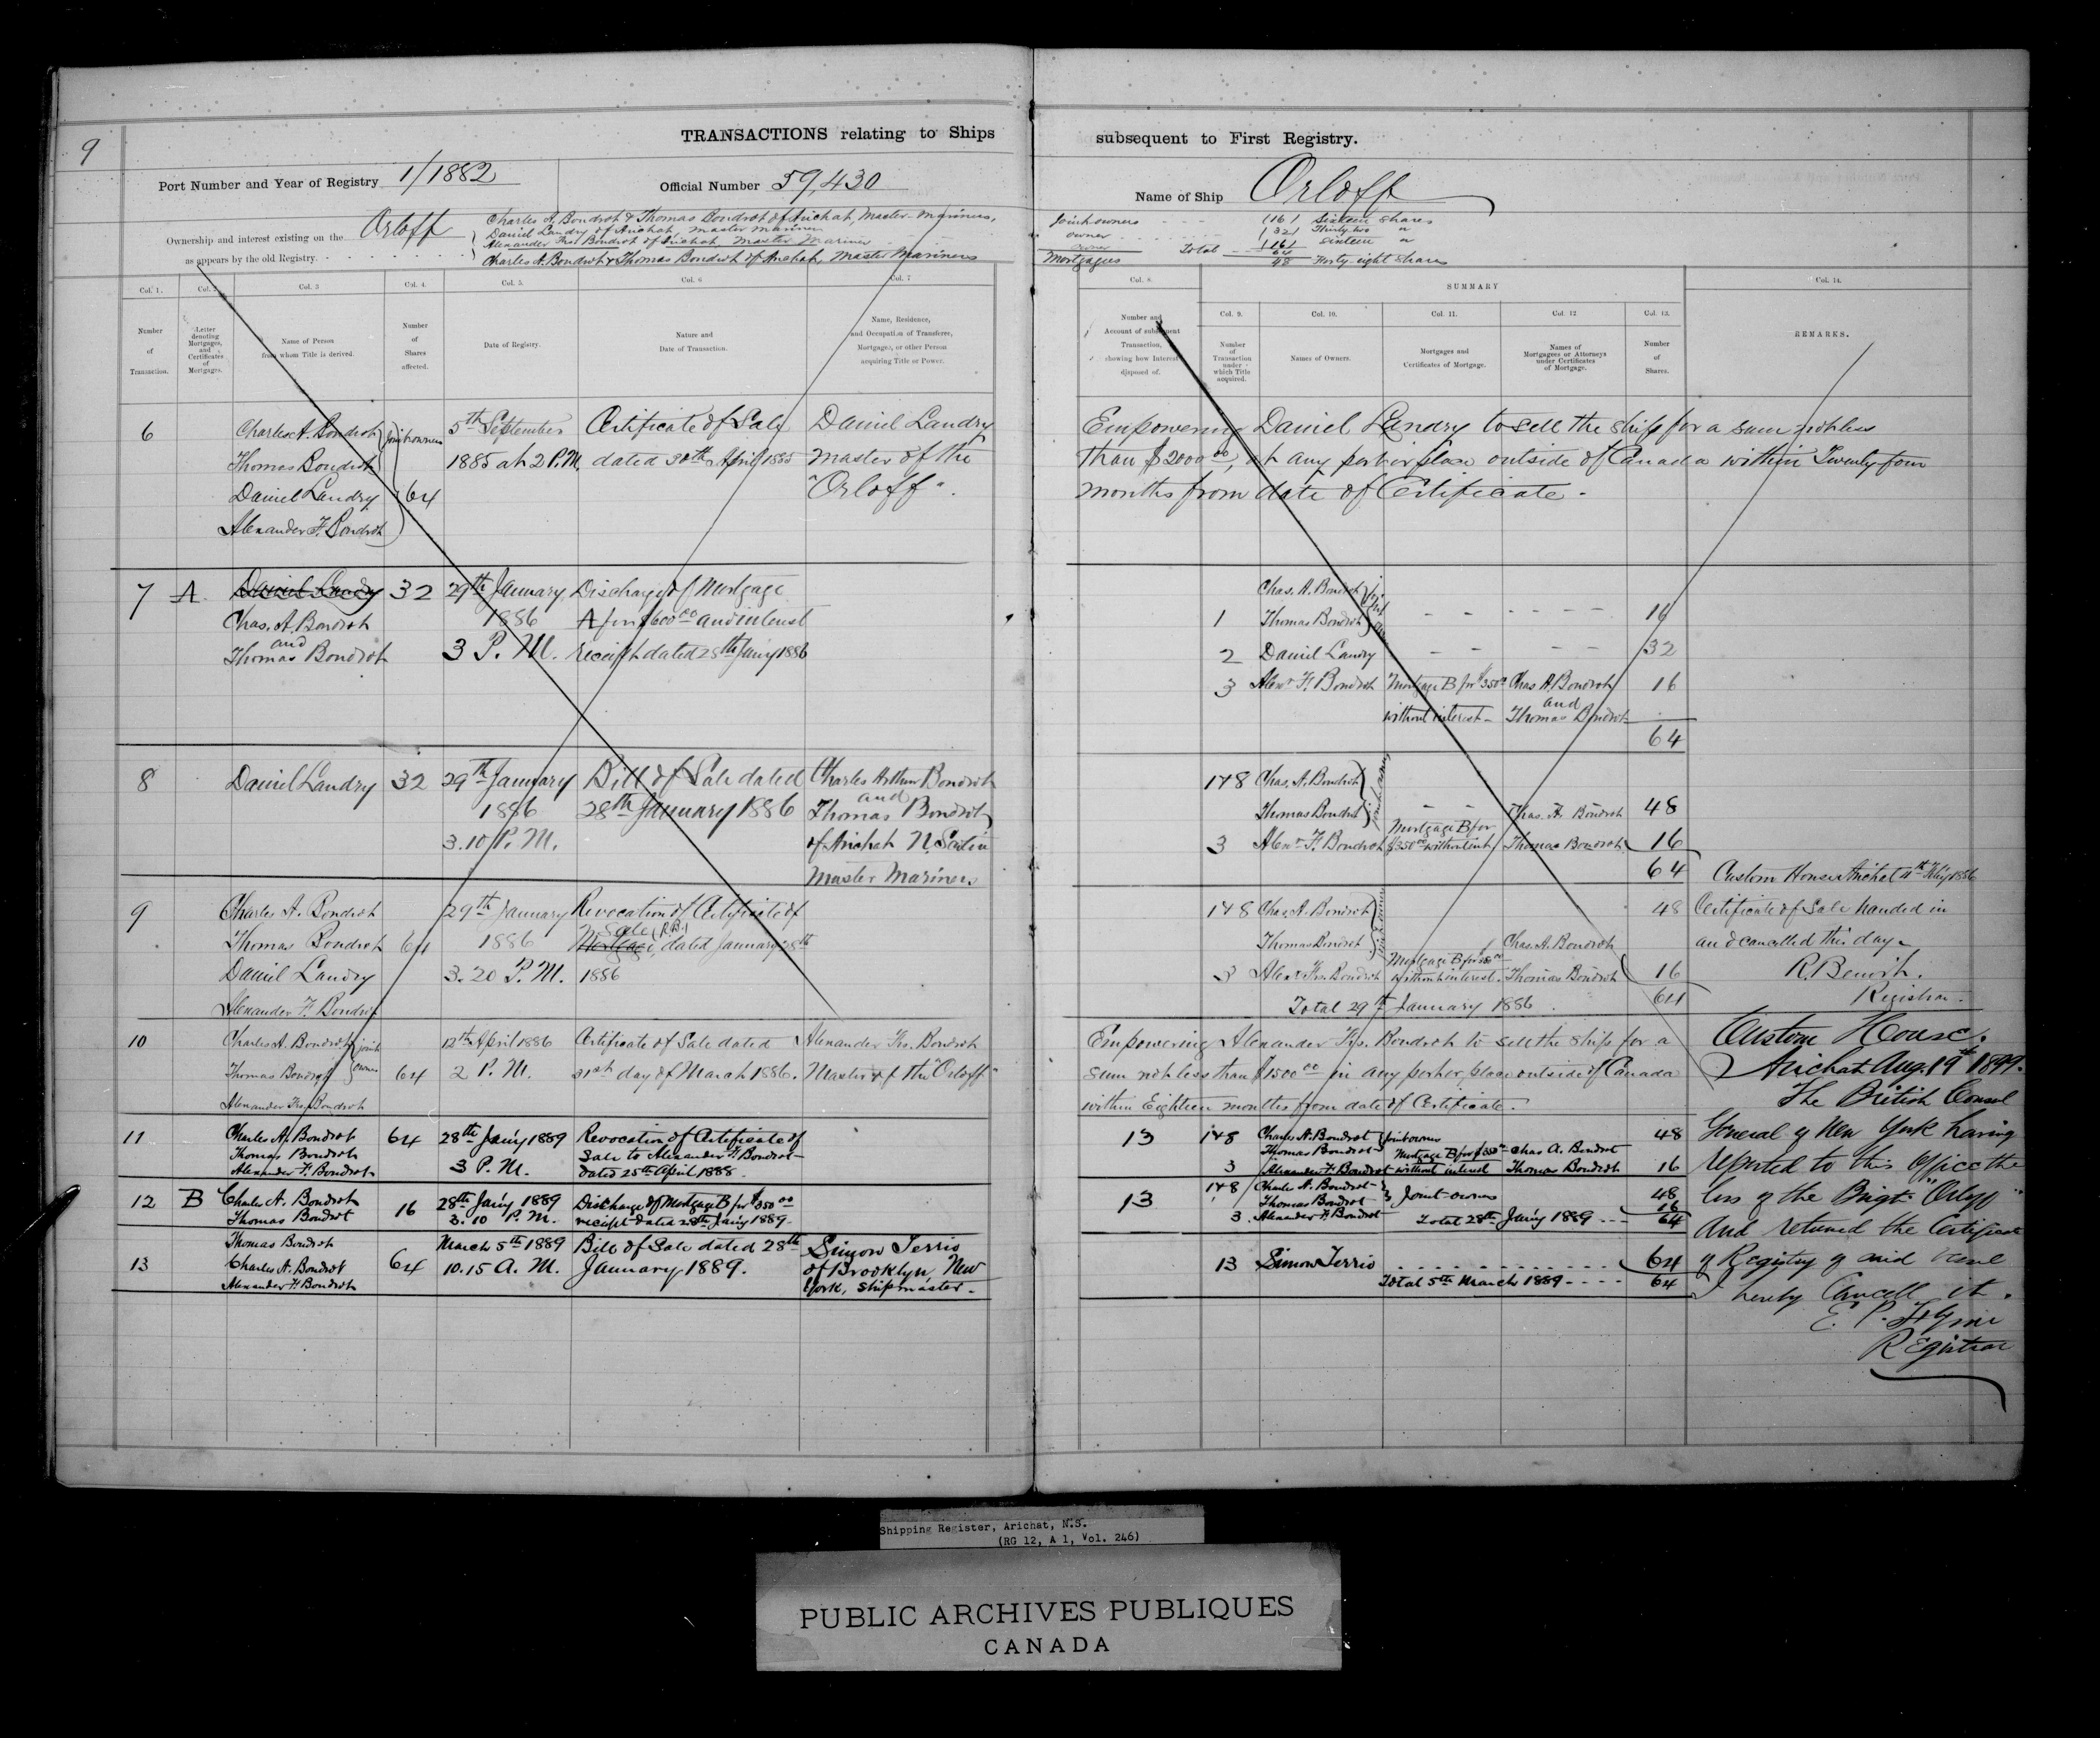 9
TRANSACTIONS relating to Ships
subsequent to First Registry.
Port Number and Year of Registry 1/1882
Official Number 59,430
Name of Ship Orloff
Ownership and interest existing on the Orloff
as appears by the old Registry.
Charles A. Boudrot & Thomas Boudrot of Arichat, Master Mariners,
Daniel Landry of Arichat, master mariner
Alexander Frs. Boudrot of Arichat Master Mariner
Charles A. Boudrot & Thomas Boudrot of Arichat, Master Mariners
Joint owners (16) Sixteen Shares
owner (32) Thirty-two "
owner (16) sixteen "
Total 64
Mortgagees 48 Forty-eight shares
Col. 1.
Number of Transaction.
Col. 2.
Letter denoting Mortgages, and Certificates of Mortgages.
Col. 3
Name of Person from whom Title is derived.
Col. 4.
Number of Shares affected.
Col. 5.
Date of Registry.
Col. 6
Nature and Date of Transaction.
Col. 7
Name, Residence, and Occupation of Transferee, Mortgagee, or other Person acquiring Title or Power.
Col. 8.
Number and Account of subsequent Transaction, showing how Interest disposed of.
SUMMARY
Col. 9.
Number of Transaction under which Title acquired.
Col. 10.
Names of Owners.
Col. 11.
Mortgages and Certificates of Mortgage.
Col. 12
Names of Mortgagees or Attorneys under Certificates of Mortgage.
Col. 13.
Number of Shares.
Col. 14.
REMARKS.
6
Charles A. Boudrot
Thomas Boudrot
Daniel Landry
Alexander F. Boudrot
Joint owners
64
5th September
1885 at 2 P.M.
Certificate of Sale
dated 30th April 1885
Daniel Landry
Master of the
"Orloff".
Empowering Daniel Landry to sell the ship for a sum not less
than $2000 00, at any port or place outside of Canada within Twenty four
months from date of Certificate.
7 A
Daniel Landry 32
Chas. A. Boudrot
and
Thomas Boudrot
29th January
1886
3 P. M.
Discharge of Mortgage
A for $600 00 and interest
receipt dated 28th Jany 1886
1 Chas. A. Boudrot
Thomas Boudrot 16
2 Daniel Landry 32
3 Alexr F. Boudrot Mortgage B for $350 Chas A. Boudrot 16
and
without interest Thomas Boudrot
64
8 Daniel Landry 32
29th January
1886
3.10 P. M.
Bill of Sale dated
28th January 1886
Charles Arthur Boudrot
and
Thomas Boudrot
of Arichat N. Scotia
Master Mariners
1 & 8 Chas. A. Boudrot
Thomas Boudrot joint owners 48
Chas. A. Boudrot
3 Alexr F. Boudrot Mortgage B for $350 00 without int Thomas Boudrot 16
64
Custom House Arichat 11th Feby 1886
Certificate of Sale handed in
and cancelled this day.
R. Benoit.
Registrar.
9
Charles A. Boudrot
Thomas Boudrot 64
Daniel Landry
Alexander F. Boudrot
29th January
1886
3.20 P. M.
Revocation of Certificate of
Sale (R.B.)
Mortgage, dated January 28th
1886
1 & 8 Chas. A. Boudrot 48
Thomas Boudrot
Chas. A. Boudrot
3 Alexr Frs. Boudrot Mortgage B for 350 00 without interest. Thomas Boudrot 16
Total 29th January 1886 64
10
Charles A. Boudrot
Thomas Boudrot
joint owners
Alexander Frs. Boudrot
64
12th April 1886
2 P. M.
Certificate of Sale dated
31st day of March 1886.
Alexander Frs. Boudrot
Master of the "Orloff"
Empowering Alexander Frs. Boudrot to sell the ship for a
sum not less than $1500 00 in any port or place outside of Canada
within Eighteen months from date of Certificate.
11
Charles A. Boudrot
Thomas Boudrot
Alexander F. Boudrot
64
28th Jany 1889
3 P. M.
Revocation of Certificate of
Sale to Alexander F. Boudrot
dated 25th April 1888.
13
1 & 8 Charles A. Boudrot
Thomas Boudrot joint owners 48
3 Alexander F. Boudrot Mortgage B for $350 without interest Chas A. Boudrot
Thomas Boudrot 16
12 B
Charles A. Boudrot
Thomas Boudrot
16
28th Jany 1889
3.10 P. M.
Discharge of Mortgage B for $350 00
receipt dated 28th Jany 1889
13
1 & 8 Charles A. Boudrot
Thomas Boudrot Joint owners 48
3. Alexander F. Boudrot 16
Total 28th Jany 1889 64
13
Thomas Boudrot
Charles A. Boudrot
Alexander F. Boudrot
64
March 5th 1889
10.15 A. M.
Bill of Sale dated 28th
January 1889.
Simon Terrio
of Brooklyn, New
York, shipmaster.
13 Simon Terrio 64
Total 5th March 1889 64
Custom House,
Arichat Aug. 19th 1899.
The British Consul
General of New York having
reported to this Office the
loss of the Brigt. "Orloff"
And returned the Certificate
of Registry of said vessel
I hereby Cancell it.
E. P. Flynn
Registrar
Shipping Register, Arichat, N.S.
(RG 12, A 1, Vol. 246)
PUBLIC ARCHIVES PUBLIQUES
CANADA